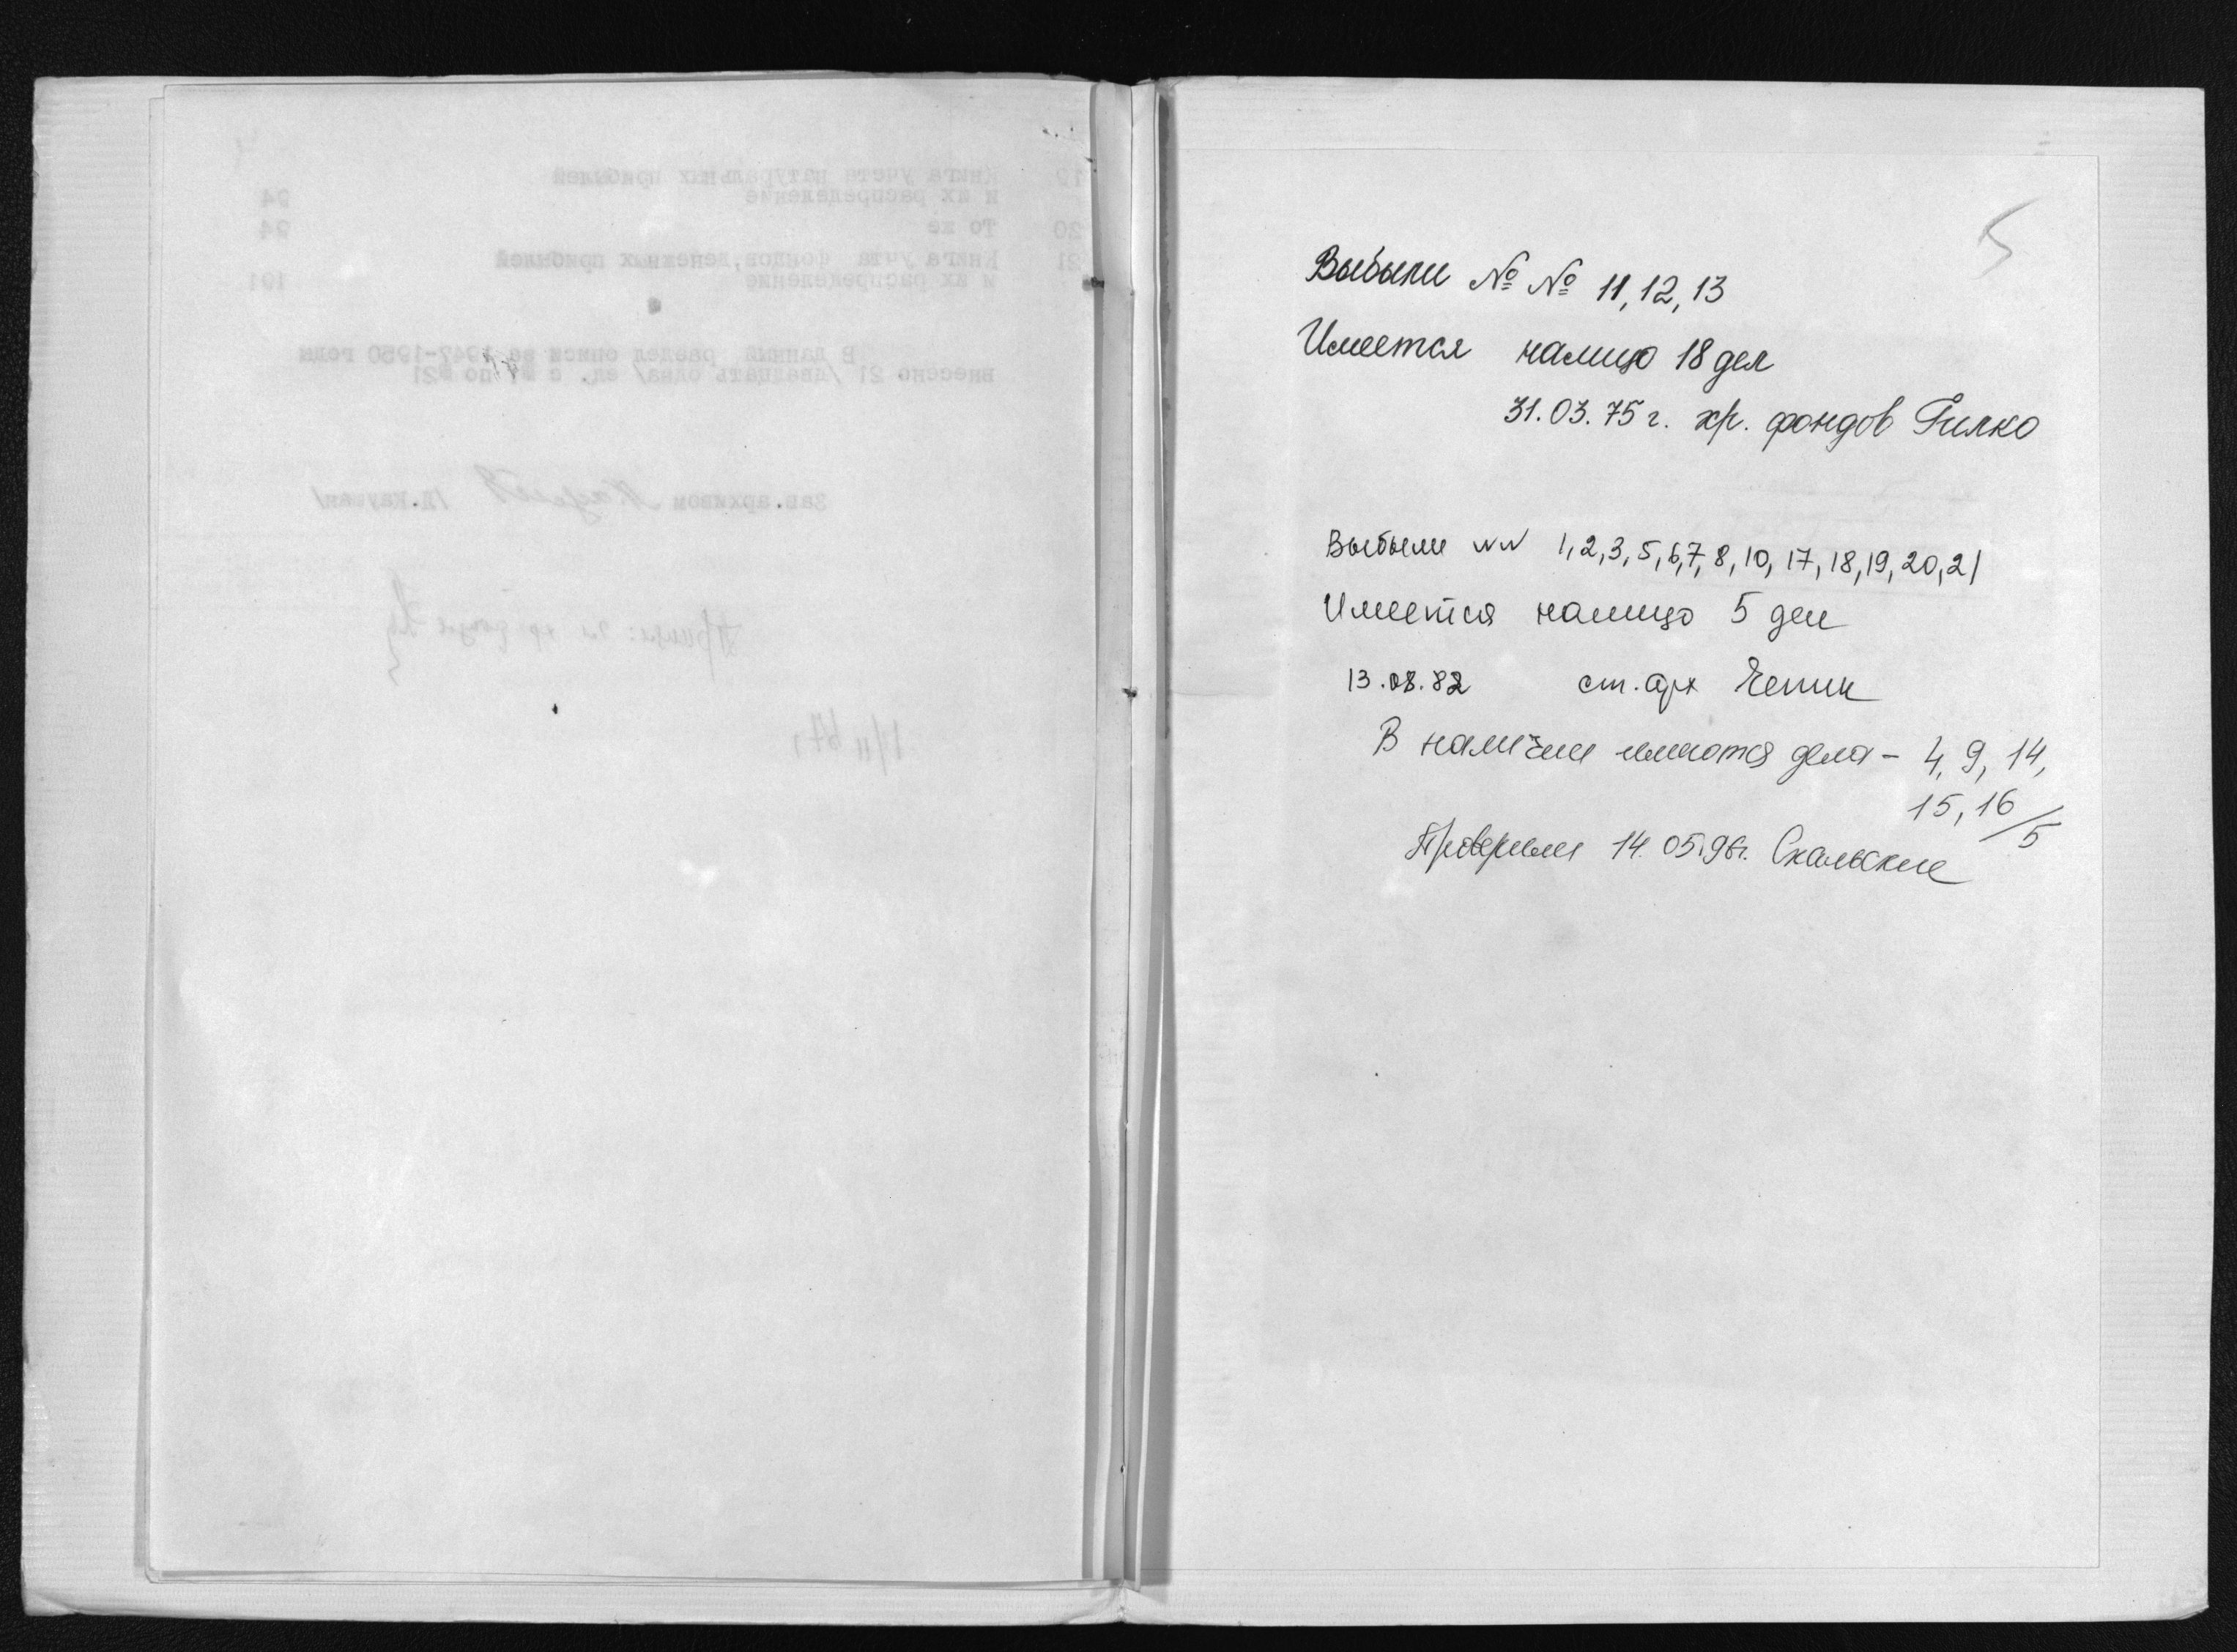 19 Книга учета натуральных прибылей
и их распределение 94
20 То же 94
21 Книга учта фондов, денежных прибылей
и их распределение 101
В данный раздел описи за 1947-1950 годы
внесено 21 /двадцать одна/ ед. с № 1 по № 21
Зав.архивом
5
Выбыли №№ 11, 12, 13
Имеется налицо 18 дел
31.03.75 г. хр. фондов Гилко
Выбыли NN 1, 2, 3, 5, 6, 7, 8, 10, 17, 18, 19, 20, 21
Имеется налицо 5 дел
13.08.82 ст. арх
В наличии имеются дела - 4, 9, 14,
15, 16 / 5
Проверили 14.05.96г.